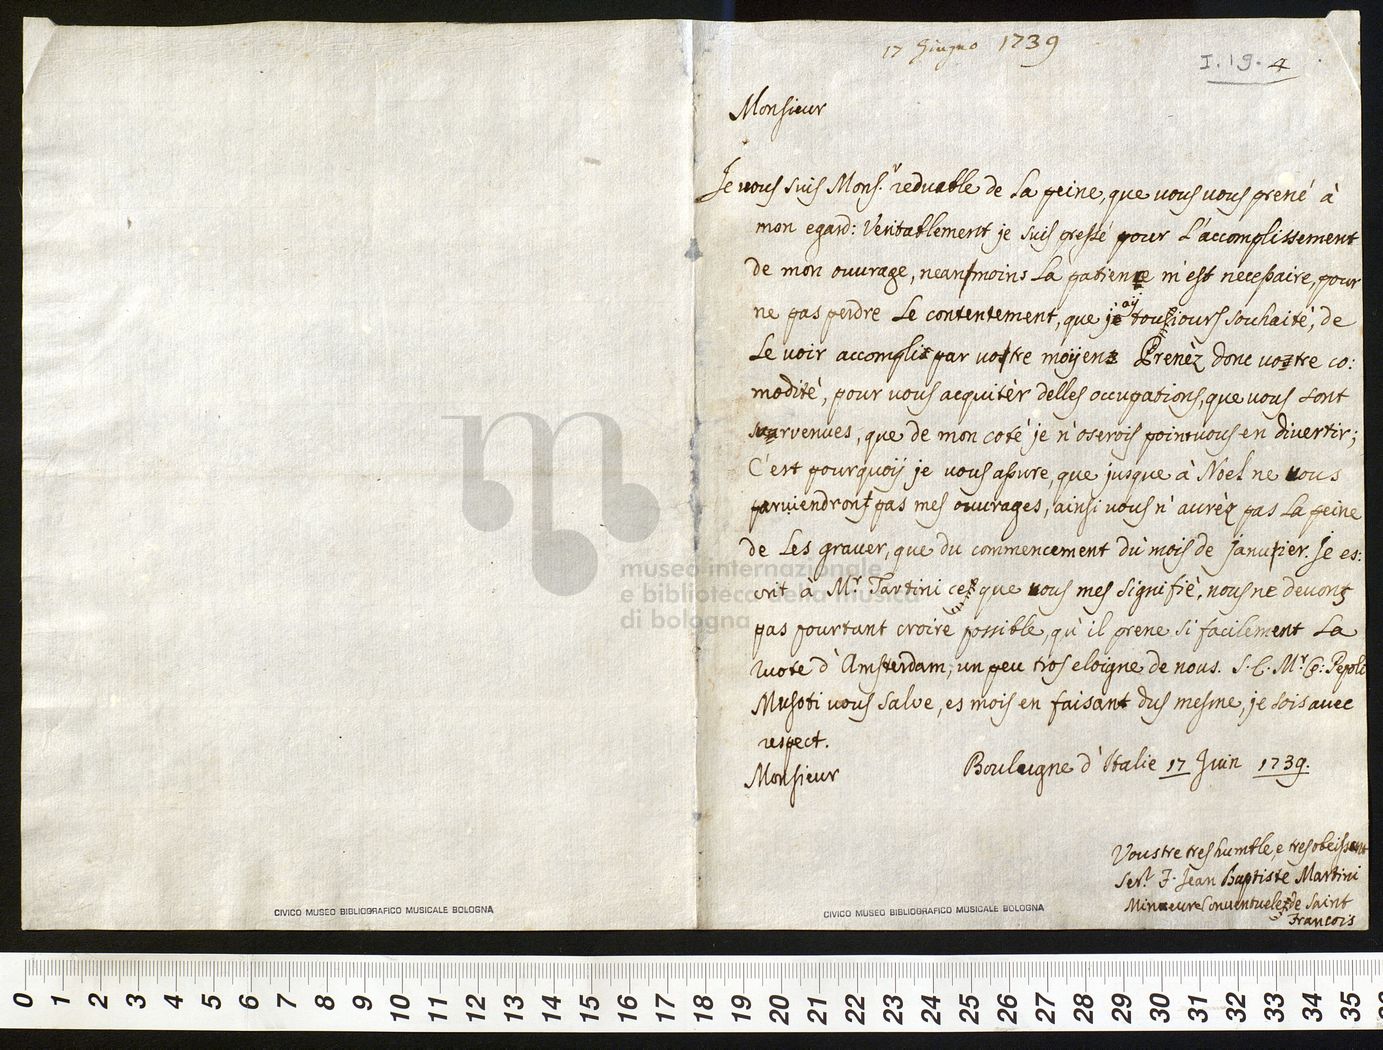 17 Giugno 1739
I.19.4
Monsieur
Je vous suis Mons.r reduable de la peine, que vous vous prené à
mon egard: Veritablement je suis pressé pour l'accomplissement
de mon ouvrage, neanmoins la patience m'est necessaire, pour
ne pas perdre le contentement, que j'ay tousiours souhaité, de
le voir accompli par vostre moyen. Prenèz donc vostre co:
modité, pour vous acquitèr delles occupations, que vous sont
survenues, que de mon coté je n'oserois point vous en divertir;
C'est pourquoÿ je vous assure, que jusque à Noel ne vous
parviendront pas mes ouvrages, ainsi vous n'aurèz pas la peine
de les graver, que du commencement du mois de Januier. Je es:
crit à M.r Tartini ce que vous mes signifiè, nous ne devons
pas pourtant croire possible, qu'il prene si facilement la
ruote d'Amsterdam, un peu tros eloigne de nous. S. E. M.r C: Pepoli
Musoti vous salve, es mois en faisant dus mesme, je sois avec
respect.
Monsieur
Boulugne d'Italie 17 Juin 1739.
Voustre tres humble, e tres obeissant
Ser.r F. Jean Baptiste Martini
Mineure Conventuele de Saint
Francois
museo internazionale
e biblioteca della musica
di bologna
CIVICO MUSEO BIBLIOGRAFICO MUSICALE BOLOGNA
CIVICO MUSEO BIBLIOGRAFICO MUSICALE BOLOGNA
0 1 2 3 4 5 6 7 8 9 10 11 12 13 14 15 16 17 18 19 20 21 22 23 24 25 26 27 28 29 30 31 32 33 34 35